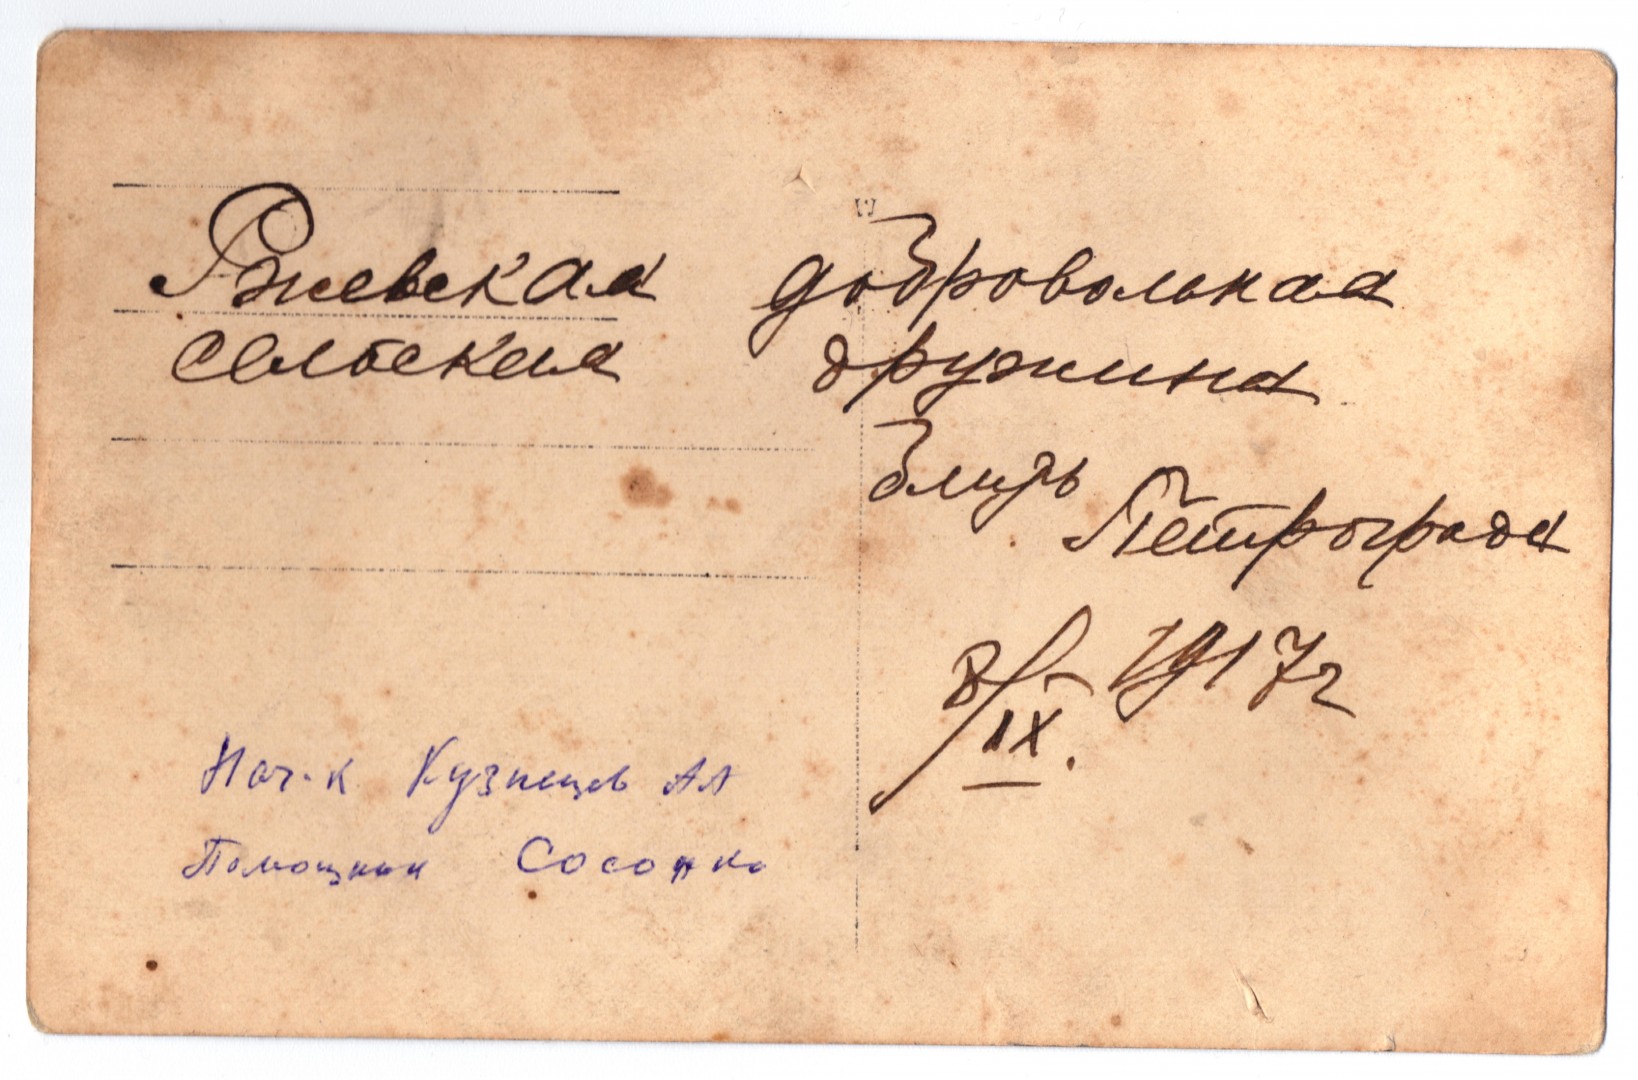 Ржевская добровольная
сельская дружина
близь Петрограда
8/IX. - 1917 г
Нач-к Кузнецов Ал
Помощник Сосонко